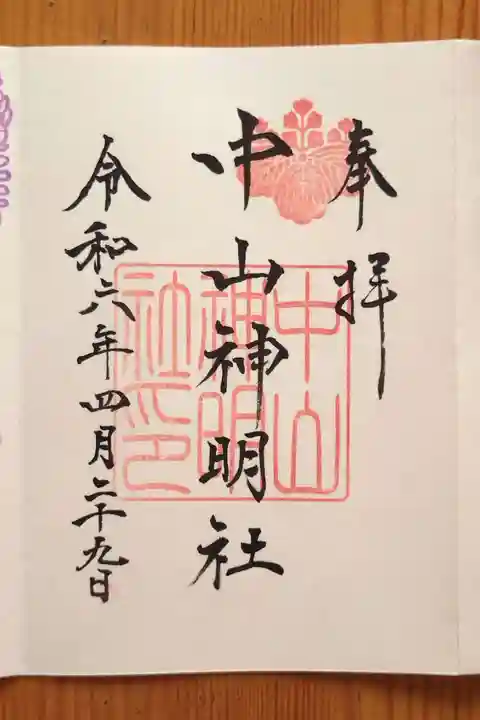 奉拝
中山神明社
中山
神明
社印
令和六年四月二十九日